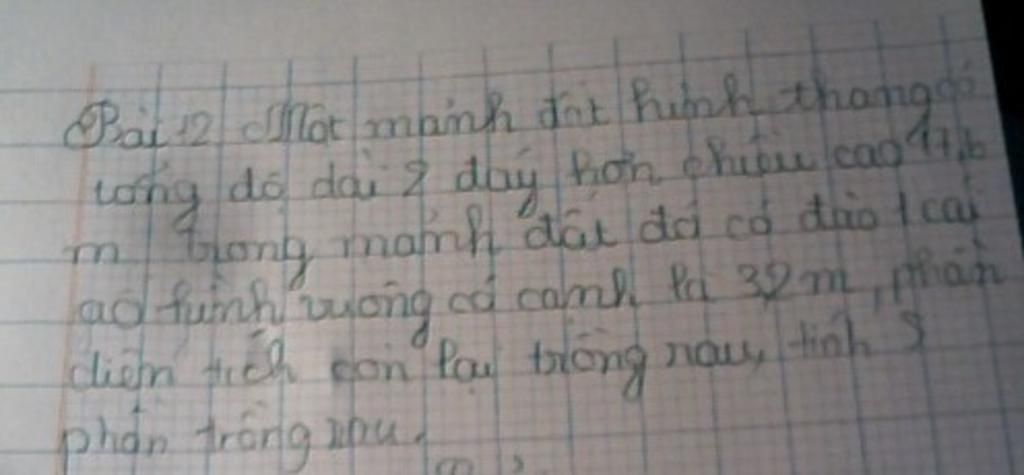 Bài 12 Một mảnh đất hình thang có
tổng độ dài 2 đáy hơn chiều cao
m trong mảnh đất đó có đào 1 cái
ao hình vuông có cạnh là 32 m, phần
diện tích còn lại trồng rau, tính S
phần trồng rau.